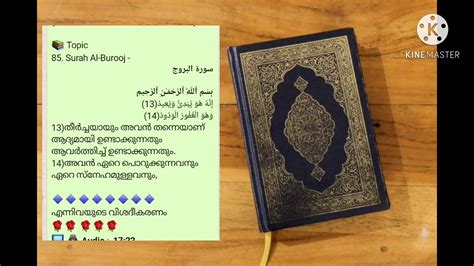 📚 Topic
85. Surah Al-Burooj -
سورة البروج
بِسْمِ ٱللَّهِ ٱلرَّحْمَٰنِ ٱلرَّحِيمِ
إِنَّهُ هُوَ يُبْدِئُ وَيُعِيدُ(13)
وَهُوَ الْغَفُورُ الْوَدُودُ(14)
13)തീർച്ചയായും അവൻ തന്നെയാണ്
ആദ്യമായി ഉണ്ടാക്കുന്നതും
ആവർത്തിച്ച് ഉണ്ടാക്കുന്നതും.
14)അവൻ ഏറെ പൊറുക്കുന്നവനും
ഏറെ സ്നേഹമുള്ളവനും,
എന്നിവയുടെ വിശദീകരണം
Audio : 17:22
KINEMASTER